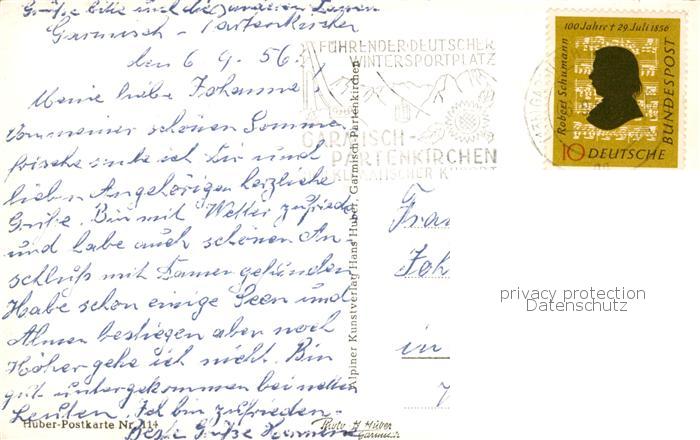 Grüße bitte auch die anderen Damen
Garmisch - Partenkirchen
den 6 9. 56.
Meine liebe Johanna!
Von meiner schönen Sommer
frische sende ich Dir und
lieben Angehörigen herzliche
Grüße. Bin mit Wetter zufrieden
und habe auch schönen An-
schluß mit Damen gefunden
Habe schon einige Seen und
Almen bestiegen aber noch
Höher gehe ich nicht. Bin
gut untergekommen bei netten
Leuten. Ich bin zufrieden.
Beste Grüße
Huber-Postkarte Nr. 114
Photo H Huber
Garmisch
Alpiner Kunstverlag Hans Huber, Garmisch-Partenkirchen
FÜHRENDER DEUTSCHER
WINTERSPORTPLATZ
GARMISCH-
PARTENKIRCHEN
KLIMATISCHER KURORT
100 Jahre † 29. Juli 1856
Robert Schumann
10 DEUTSCHE
BUNDESPOST
Frau
Joh
in
privacy protection
Datenschutz